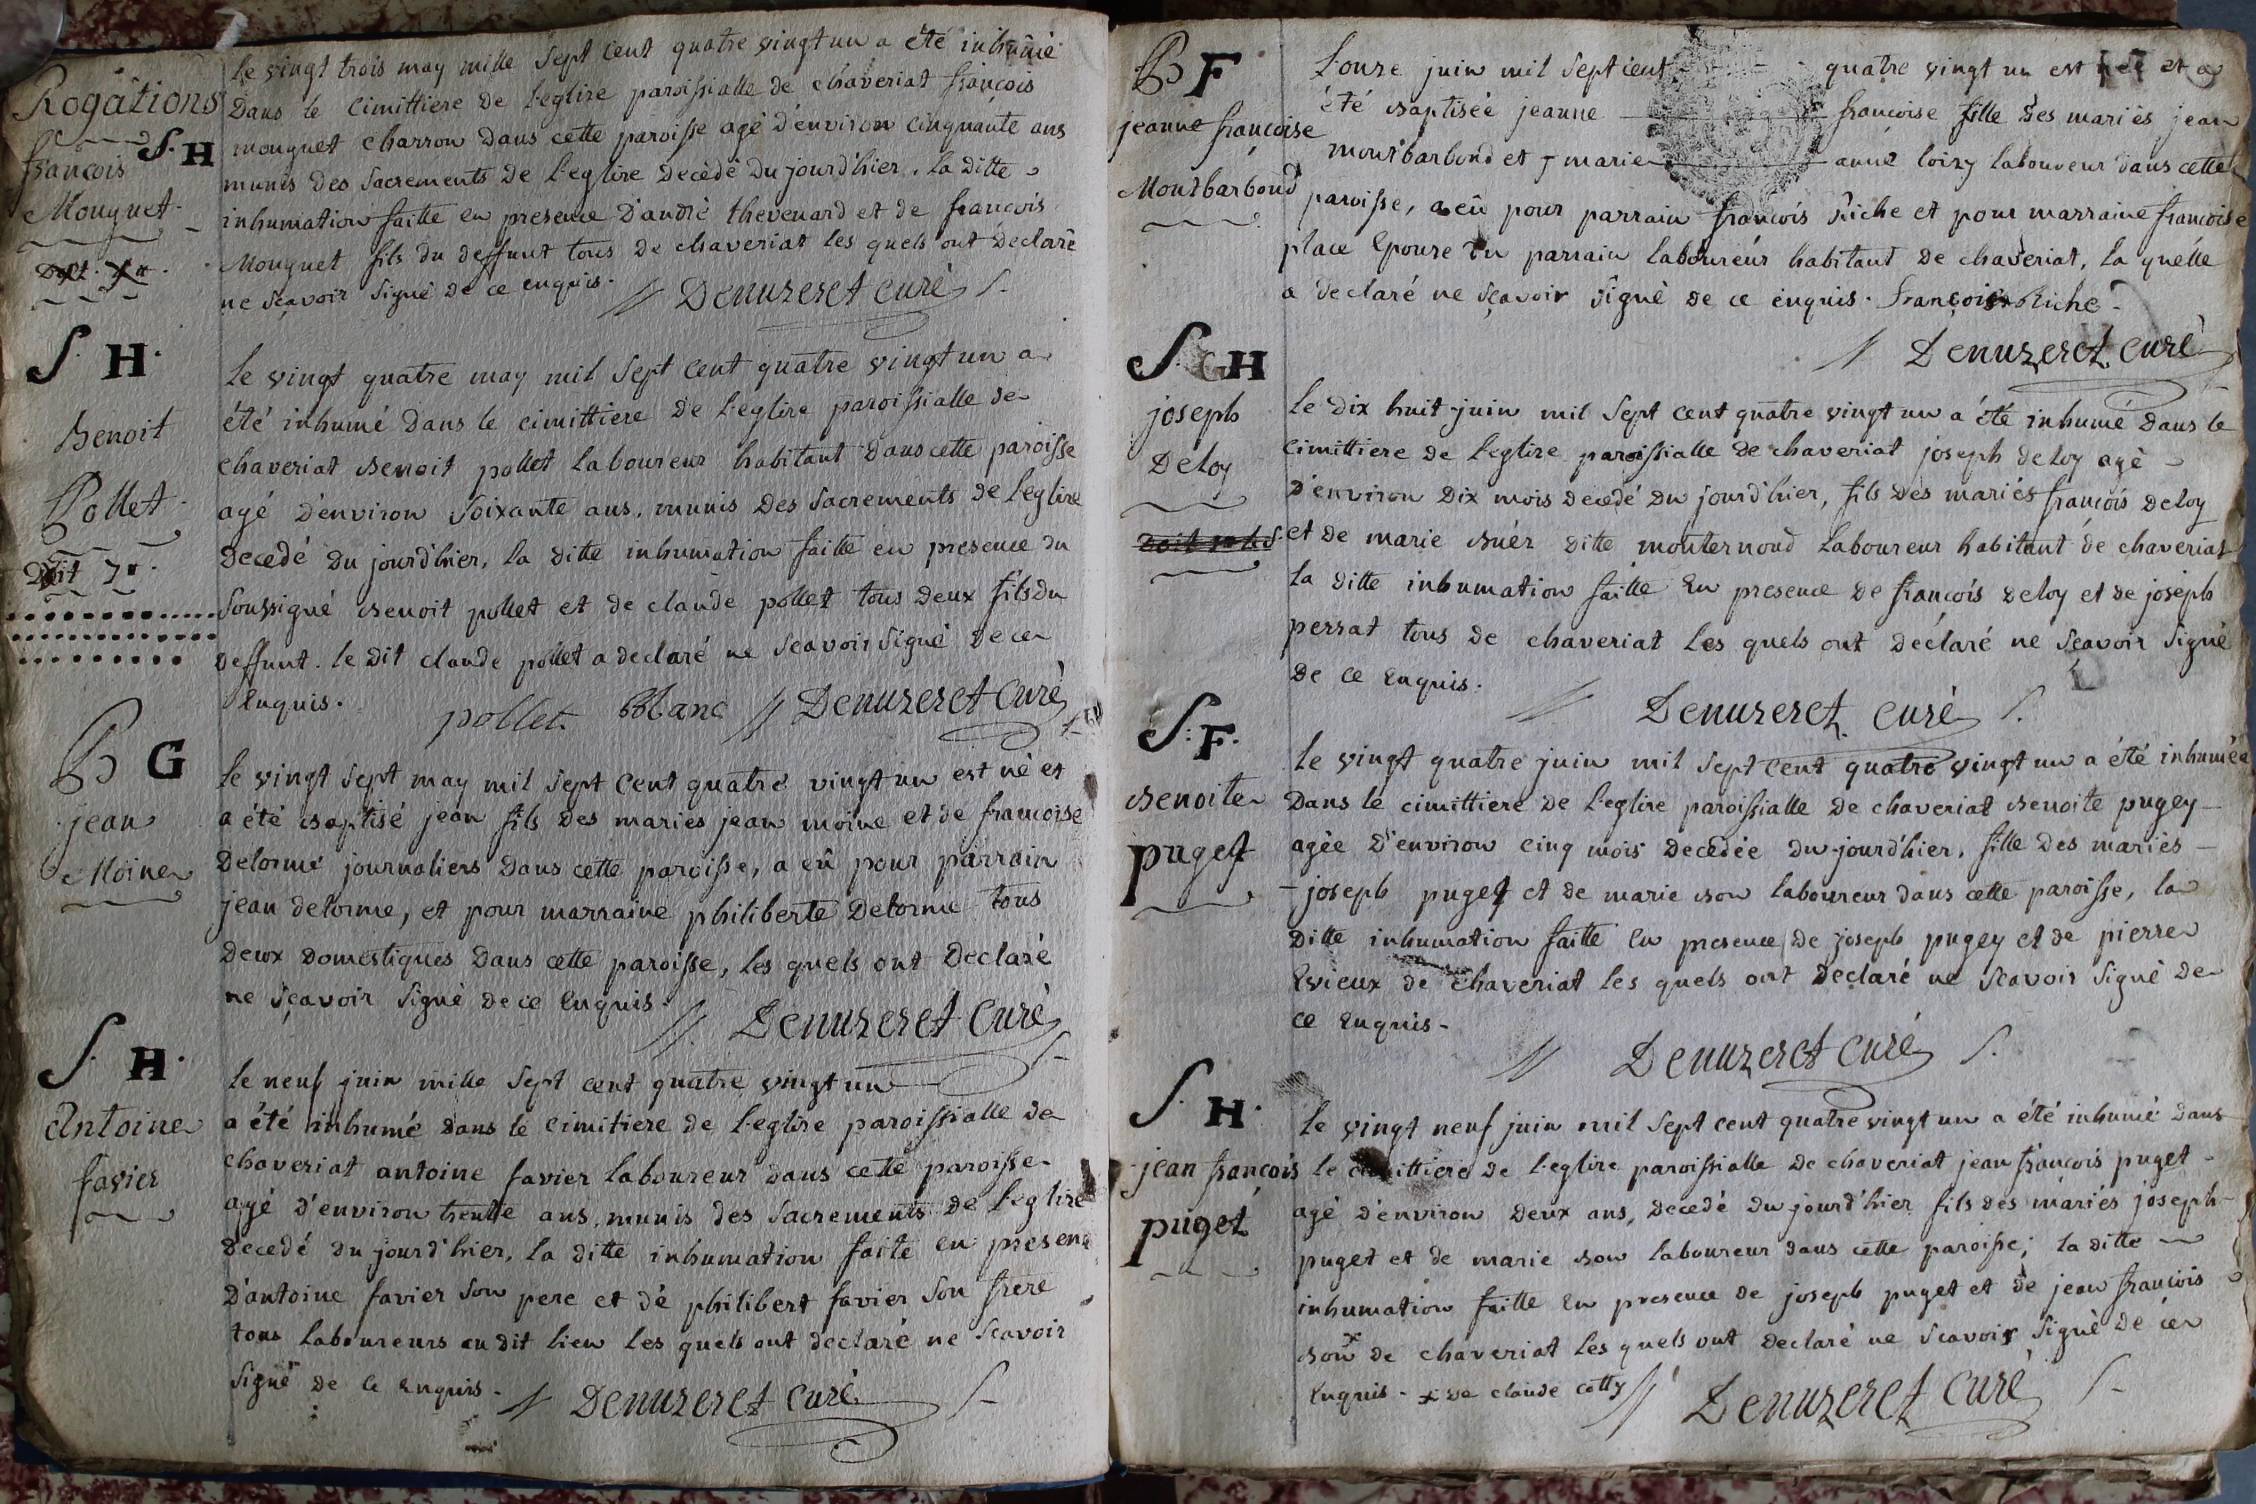 Rogations
S. H
françois
Mouquet
le vingt trois may mille Sept Cent quatre vingt un a été inhumé
Dans le cimittiere de l'eglise paroissialle de chaveriat françois
mouquet charron dans cette paroisse agé d'environ cinquante ans
munis des Sacrements de l'eglise decèdé du jourd'hier. la ditte
inhumation faitte en presence d'andré thevenard et de françois
Mouquet fils du deffunt tous de chaveriat les quels ont déclaré
ne sçavoir signé de ce enquis. Denuzeret curé
S. H.
Benoit
Pollet
le vingt quatre may mil Sept cent quatre vingt un a
été inhumé dans le cimittiere de l'eglise paroissialle de
chaveriat Benoit pollet laboureur habitant dans cette paroisse
agé d'environ soixante ans, munis des sacrements de l'eglise
decedé du jourd'hier, la ditte inhumation faitte en presence du
soussigné Benoit pollet et de claude pollet tous deux fils du
deffunt. le dit claude pollet a declaré ne scavoir signé de ce
enquis. pollet Denuzeret curé
B G
jean
Moine
le vingt sept may mil sept cent quatre vingt un est né et
a été baptisé jean fils des mariés jean moine et de françoise
Delorme journaliers dans cette paroisse, a eû pour parrain
jean delorme, et pour marraine philiberte Delorme tous
deux domestiques dans cette paroisse, les quels ont declaré
ne sçavoir signé de ce enquis. Denuzeret curé
S. H.
Antoine
favier
le neuf juin mille sept cent quatre vingt un
a été inhumé dans le cimitiere de l'eglise paroissialle de
chaveriat antoine favier laboureur dans cette paroisse
agé d'environ trentte ans, munis des sacrements de l'eglise
decedé du jourd'hier, la ditte inhumation faite en presence
d'antoine favier son pere et de philibert favier son frere
tous laboureurs au dit lieu les quels ont declaré ne scavoir
signé de ce enquis. Denuzeret curé
B F
jeanne françoise
Montbarbond
l'onze juin mil sept cent quatre vingt un est née et a
été baptisée jeanne françoise fille des mariés jean
montbarbond et marie anne loizy laboureur dans cette
paroisse, a eû pour parrain françois Riche et pour marraine françoise
place epouse du parrain laboureur habitant de chaveriat, la quelle
a declaré ne sçavoir signé de ce enquis. françois Riche
Denuzeret curé
S. H
joseph
Deloy
le dix huit juin mil sept cent quatre vingt un a été inhumé dans le
cimittiere de l'eglise paroissialle de chaveriat joseph deloy agé
d'environ dix mois decedé du jourd'hier, fils des mariés françois deloy
et de marie buér ditte monternoud laboureur habitant de chaveriat
la ditte inhumation faitte en presence de françois deloy et de joseph
perrat tous de chaveriat les quels ont declaré ne sçavoir signé
de ce enquis. Denuzeret curé
S. F.
Benoite
pugey
le vingt quatre juin mil sept cent quatre vingt un a été inhumée
Dans le cimittiere de l'eglise paroissialle de chaveriat Benoite pugey
agée d'environ cinq mois decedée du jourd'hier, fille des mariés
joseph puget et de marie bon laboureur dans cette paroisse, la
ditte inhumation faitte en presence de joseph pugey et de pierre
Evieux de chaveriat les quels ont declaré ne scavoir signé de
ce enquis. Denuzeret curé
S. H.
jean françois
puget
le vingt neuf juin mil sept cent quatre vingt un a été inhumé dans
le cimittiere de l'eglise paroissialle de chaveriat jean françois puget
agé d'environ deux ans, decedé du jourd'hier fils des mariés joseph
puget et de marie bon laboureur dans cette paroisse; la ditte
inhumation faitte en presence de joseph puget et de jean françois
bon x de chaveriat les quels ont declaré ne scavoir signé de ce
enquis. x de claude cotty Denuzeret curé